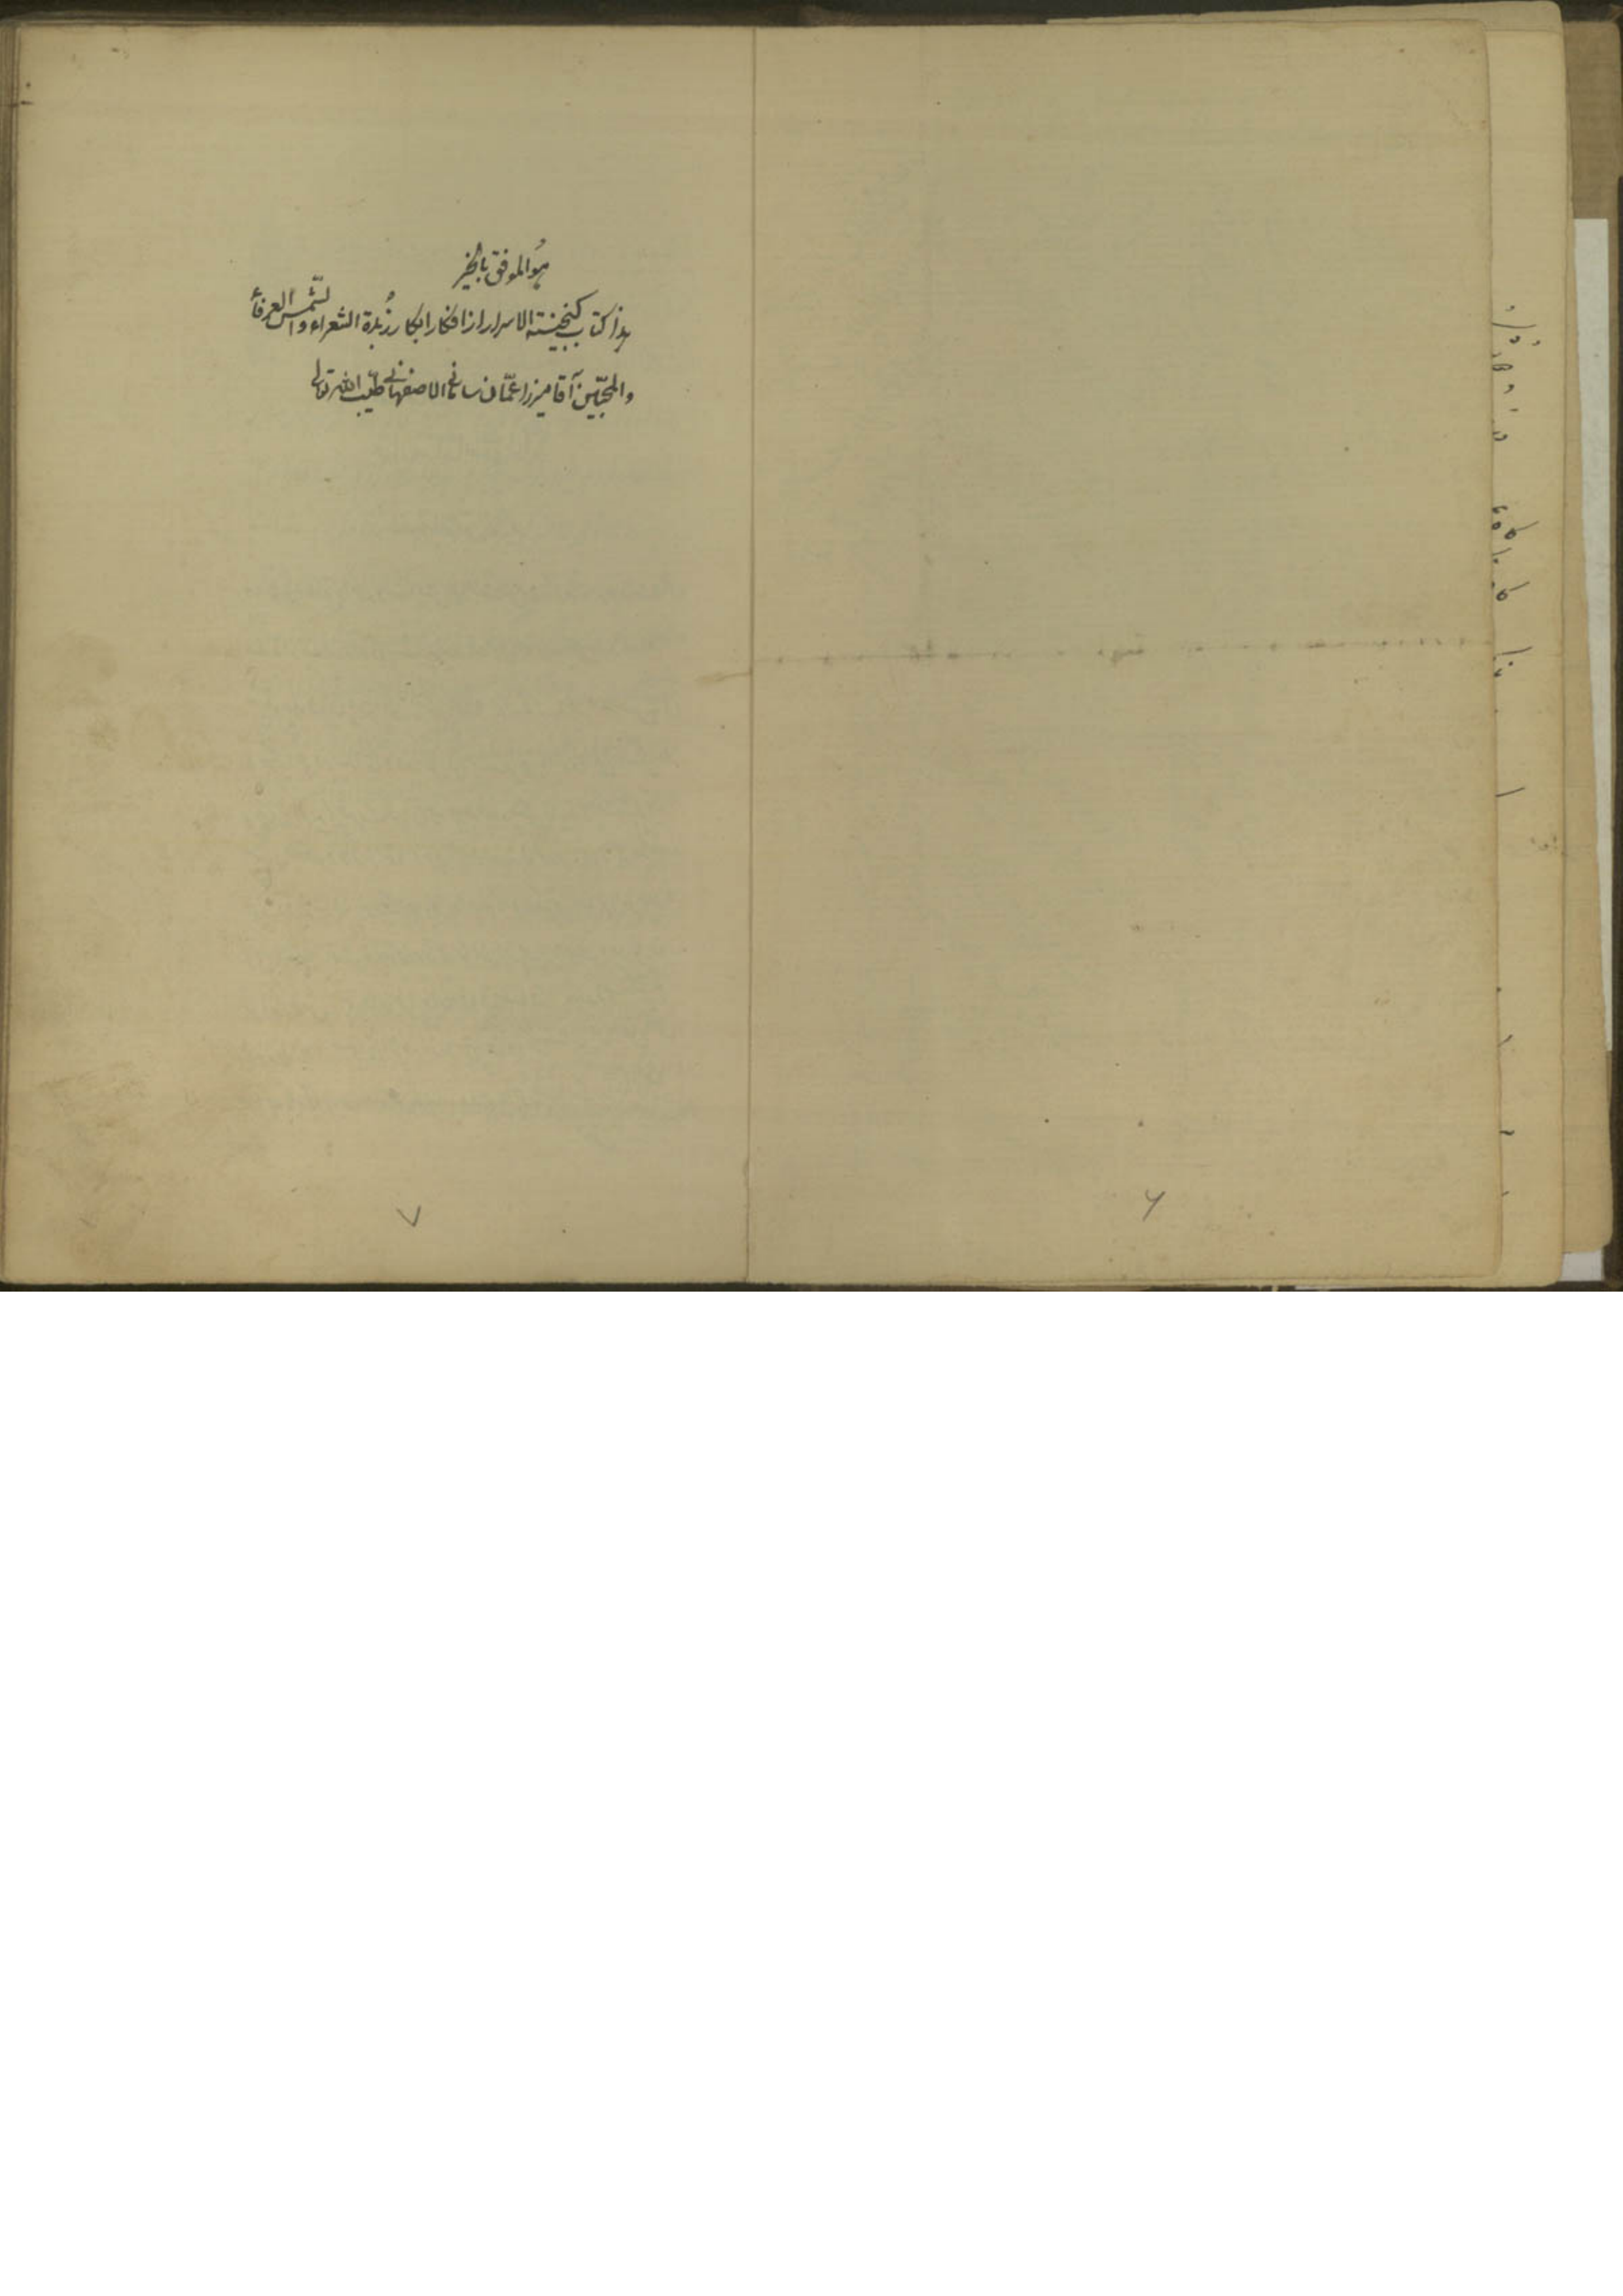 هوالموفق بالخیر
هذا کتاب گنجینة الاسرار از افکار ابکار زُبدة الشعراء و الشمس العرفاء
والمحبّین آقا میرزا عمّان سامانی الاصفهانی طیّب الله تعالی
۷
۶